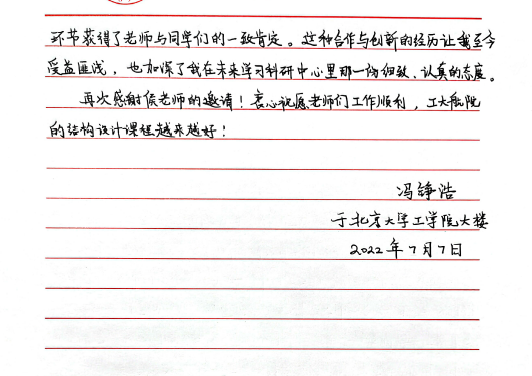 环节获得了老师与同学们的一致肯定。这种合作与创新的经历让我至今
受益匪浅，也加深了我在未来学习科研中心里那一份细致、认真的态度。
再次感谢侯老师的邀请！衷心祝愿老师们工作顺利，工大航院
的结构设计课程越来越好！
冯铮浩
于北京大学工学院大楼
2022年7月7日